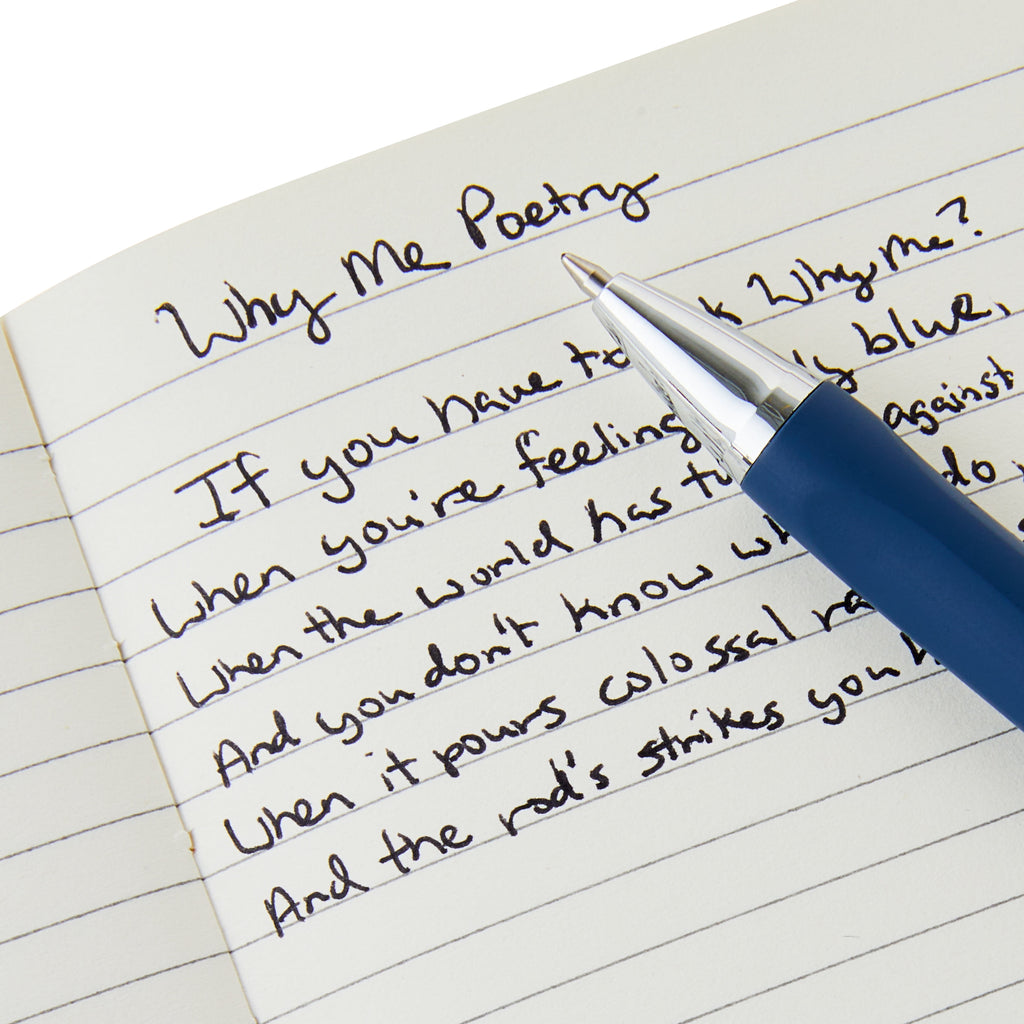 Why Me Poetry
If you have to Why Me?
When you're feeling blue,
When the world has against
And you don't know do
When it pours colossal
And the rod's strikes you